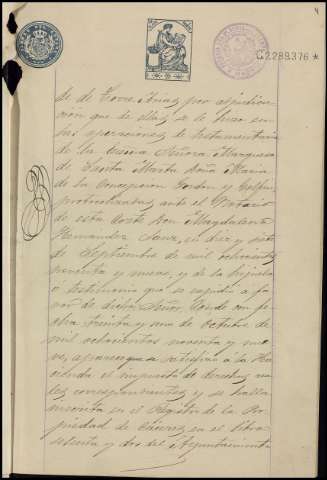 4
C2289.376 *
de de Torre Arias por adjudica-
ción que de ellas se le hizo en
las operaciones de testamentaría
de la Excma Señora Marquesa
de Santa Marta Doña María
de la Concepcion Gordon y Golfin,
protocolizadas ante el Notario
de esta Corte Don Magdaleno
Hernandez Sanz, en diez y siete
de Septiembre de mil ochocientos
noventa y nueve, y de la hijuela
ó testimonio que se expidió á fa-
vor de dicho Señor Conde con fe-
cha treinta y uno de Octubre de
mil ochocientos noventa y nue-
ve, aparece que se satisfizo á la Ha-
cienda el impuesto de derechos rea-
les correspondientes y se halla
inscrita en el Registro de la Pro-
piedad de Cáceres en el libro
setenta y dos del Ayuntamiento